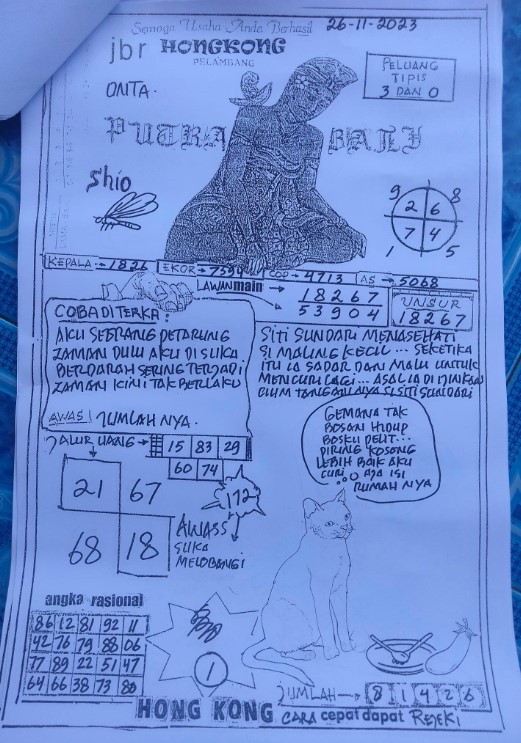 Semoga Usaha Anda Berhasil 26-11-2023
jbr HONGKONG
PELAMBANG
PELUANG
TIPIS
3 DAN 0
ONTA.
PUTRA BALI
Shio
9 8
2 6
7 4
1 5
KEPALA → 1826 EKOR → 7594 COP → 4713 AS → 5068
LAWAN main → 18267
53904
UNSUR
18267
COBA DI TERKA:
AKU SEORANG PETARUNG
ZAMAN DULU AKU DI SUKA
BERDARAH SERING TERJADI
ZAMAN KINI TAK BERLAKU
AWAS! JUMLAH NYA.
SITI SUNDARI MENASEHATI
SI MALING KECIL... SEKETIKA
ITU IA SADAR DAN MALU UNTUK
MENCURI LAGI... ASAL IA DI IJINKAN
CIUM TANGAN NYA SI SITI SUNDARI
JALUR UANG → 15 83 29
60 74
GEMANA TAK
BOSAN HIDUP
BOSKU PELIT...
PIRING KOSONG
LEBIH BAIK AKU
CURI AJA ISI
RUMAH NYA
21 67
68 18
172
AWASS
SUKA
MELOBANGI
angka rasional
86 12 81 92 11
42 76 79 88 06
77 89 22 51 47
64 66 38 73 80
1
JUMLAH → 8 1 4 2 6
HONG KONG CARA cepat dapat REJEKI